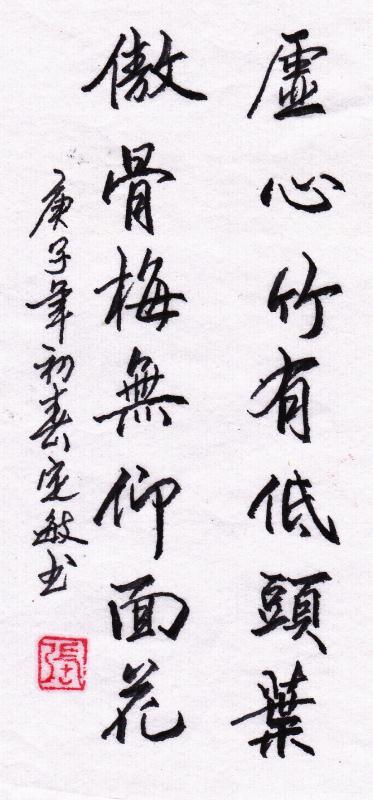 虛心竹有低頭葉
傲骨梅無仰面花
庚子年初春定敏书
張